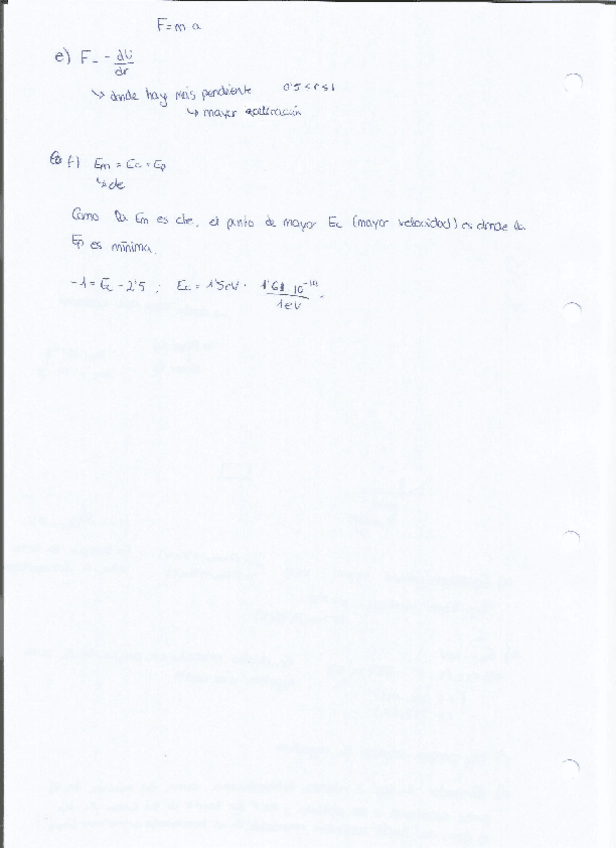 F = m a
e) F = - dU/dr
↳ donde hay más pendiente 0'5 < r ≤ 1
↳ mayor aceleración
f) Em = Ec + Ep
↳ cte
Como la Em es cte, el punto de mayor Ec (mayor velocidad) es donde la
Ep es mínima.
-1 = Ec - 2'5 ; Ec = 1'5 eV ·
1 eV